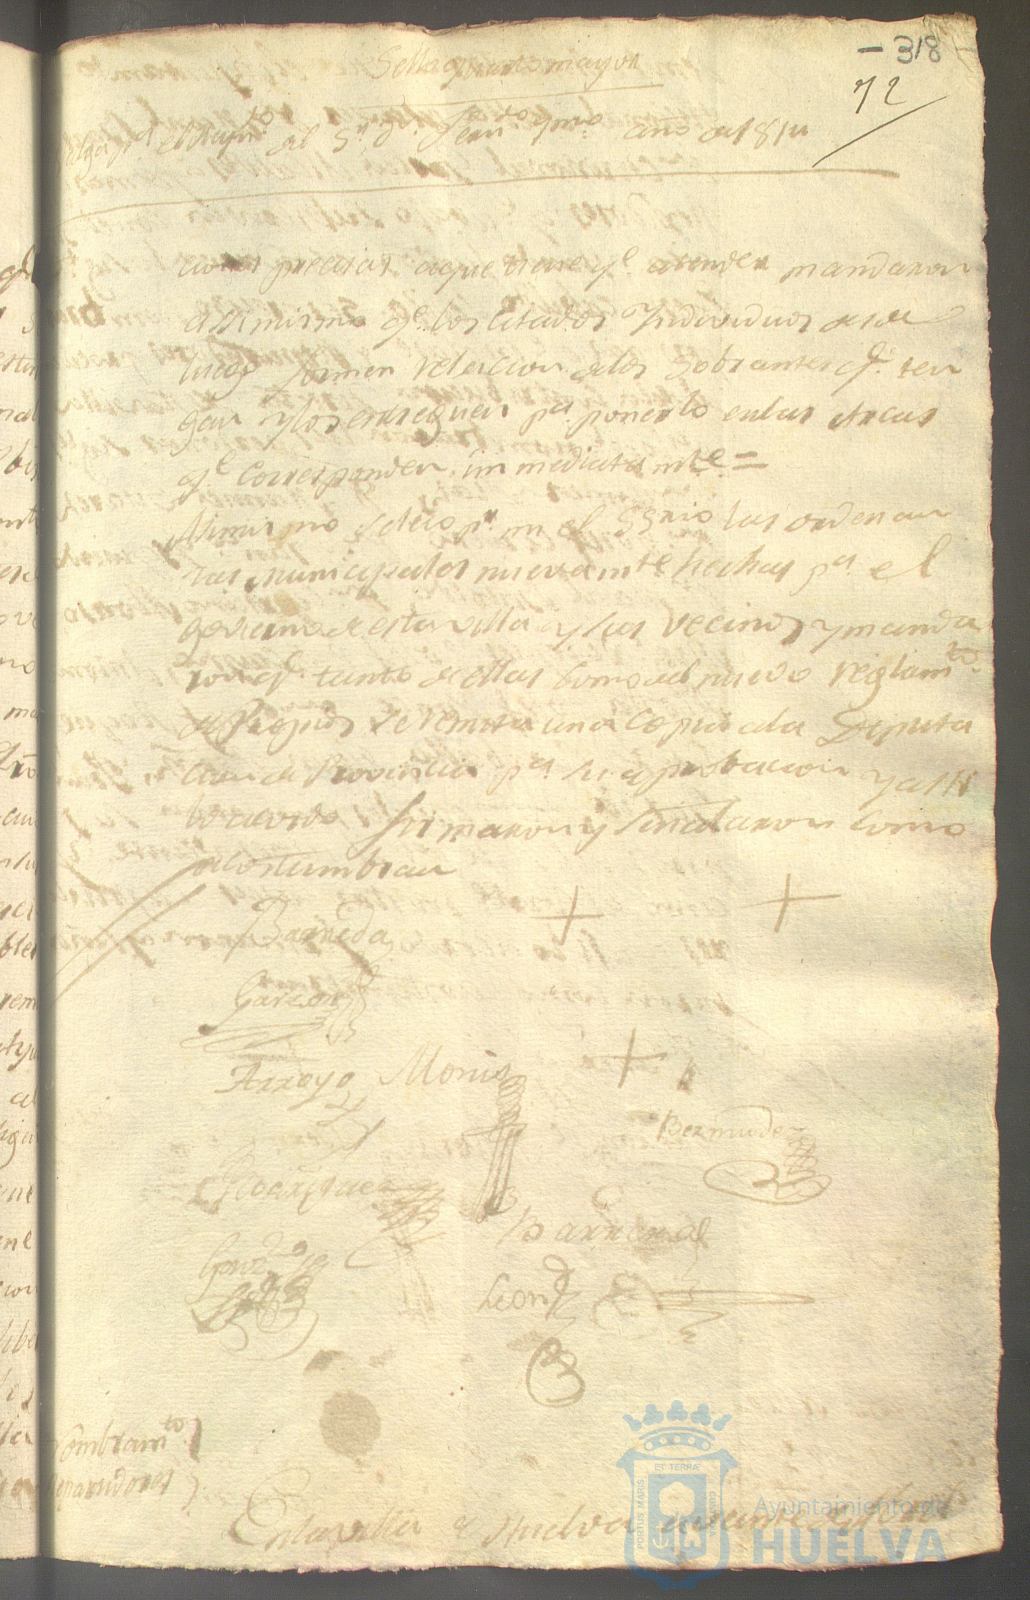 - 318 -
72
Sello quarto mayor
el Sr. D. Fern.do 7.mo año de 1814
precisas aque tiene q.e atender mandaron
asimismo q.e los citados Individuos de
formen relacion de los Sobrantes q.e ten
gan y los entreguen p.a ponerlo en las Arcas
q.e corresponden inmediatam.te =
Asimismo el SSrio las ordenan
zas municipales nuevam.te hechas p.a el
govierno de esta villa y sus vecinos y manda
ron q.e tanto de ellas como del nuevo reglam.to
de Propios se remita una Copia ala Diputa
cion de Provincia p.a su aprobacion y asi
lo acordo firmaron y señalaron como
acostumbran
Barreda
+ +
Garzon
Arroyo Monis +
Bermudez
Rodriguez
Barreral
Gonz.z
Leon
Nombram.to
Reparidores
En la villa de Huelva a veinte
EST TERRAE
PORTUS MARIS
CUSTODIA
Ayuntamiento de
HUELVA